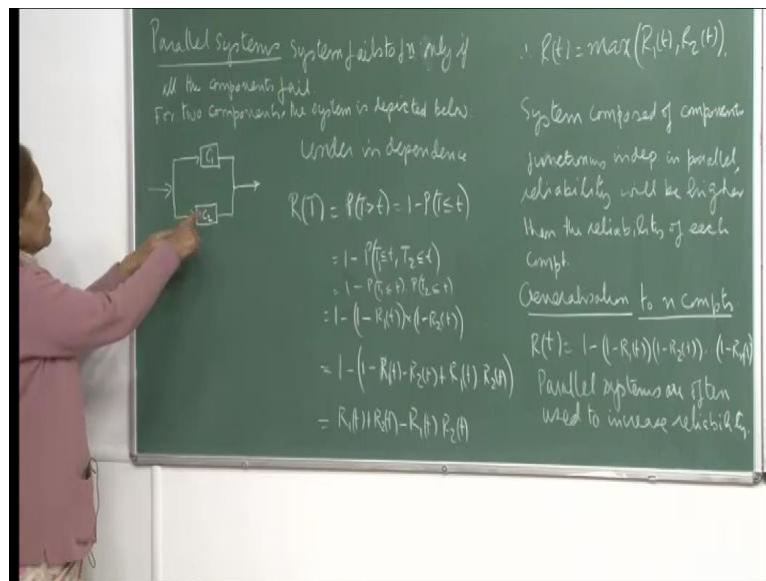 Parallel Systems System fails to fn only if
all the components fail.
For two components the system is depicted below.
C1
C2
Under independence
R(T) = P(T>t) = 1-P(T≤t)
= 1- P(T1≤t, T2≤t)
= 1- P(T1≤t). P(T2≤t)
= 1-(1-R1(t))×(1-R2(t))
= 1-(1-R1(t)-R2(t)+R1(t) R2(t))
= R1(t)+R2(t)-R1(t) R2(t)
∴ R(t) = max(R1(t), R2(t)).
System composed of components
functioning indep in parallel,
reliability will be higher
than the reliability of each
compt.
Generalisation to n compts
R(t) = 1-(1-R1(t))(1-R2(t)).. (1-Rn(t))
Parallel systems are often
used to increase reliability.